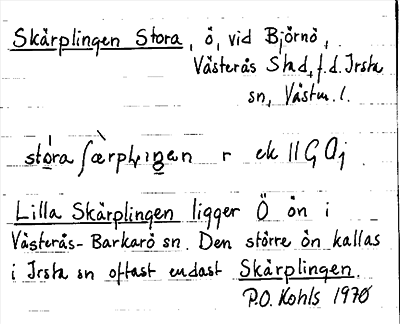 Skärplingen Stora, ö, vid Björnö,
Västerås Stad, f.d. Irsta
sn, Västm. l.
stora ʃærplɩŋən r ek
Lilla Skärplingen ligger Ö ön i
Västerås-Barkarö sn. Den större ön kallas
i Irsta sn oftast endast Skärplingen.
P.O. Kohls 1970